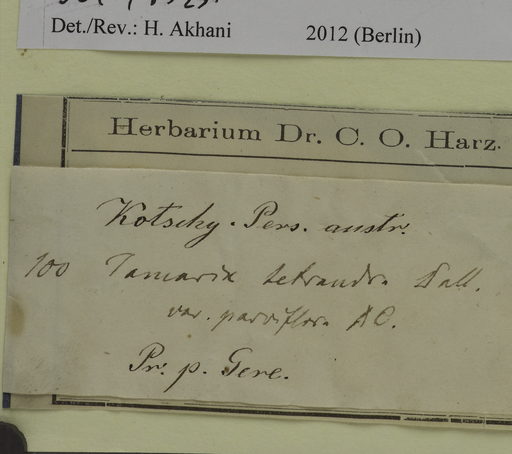 Det./Rev.: H. Akhani 2012 (Berlin)
Herbarium Dr. C. O. Harz.
Kotschy. Pers. austr.
100 Tamarix tetrandra Pall.
var. parviflora DC.
Pr. p. Gere.